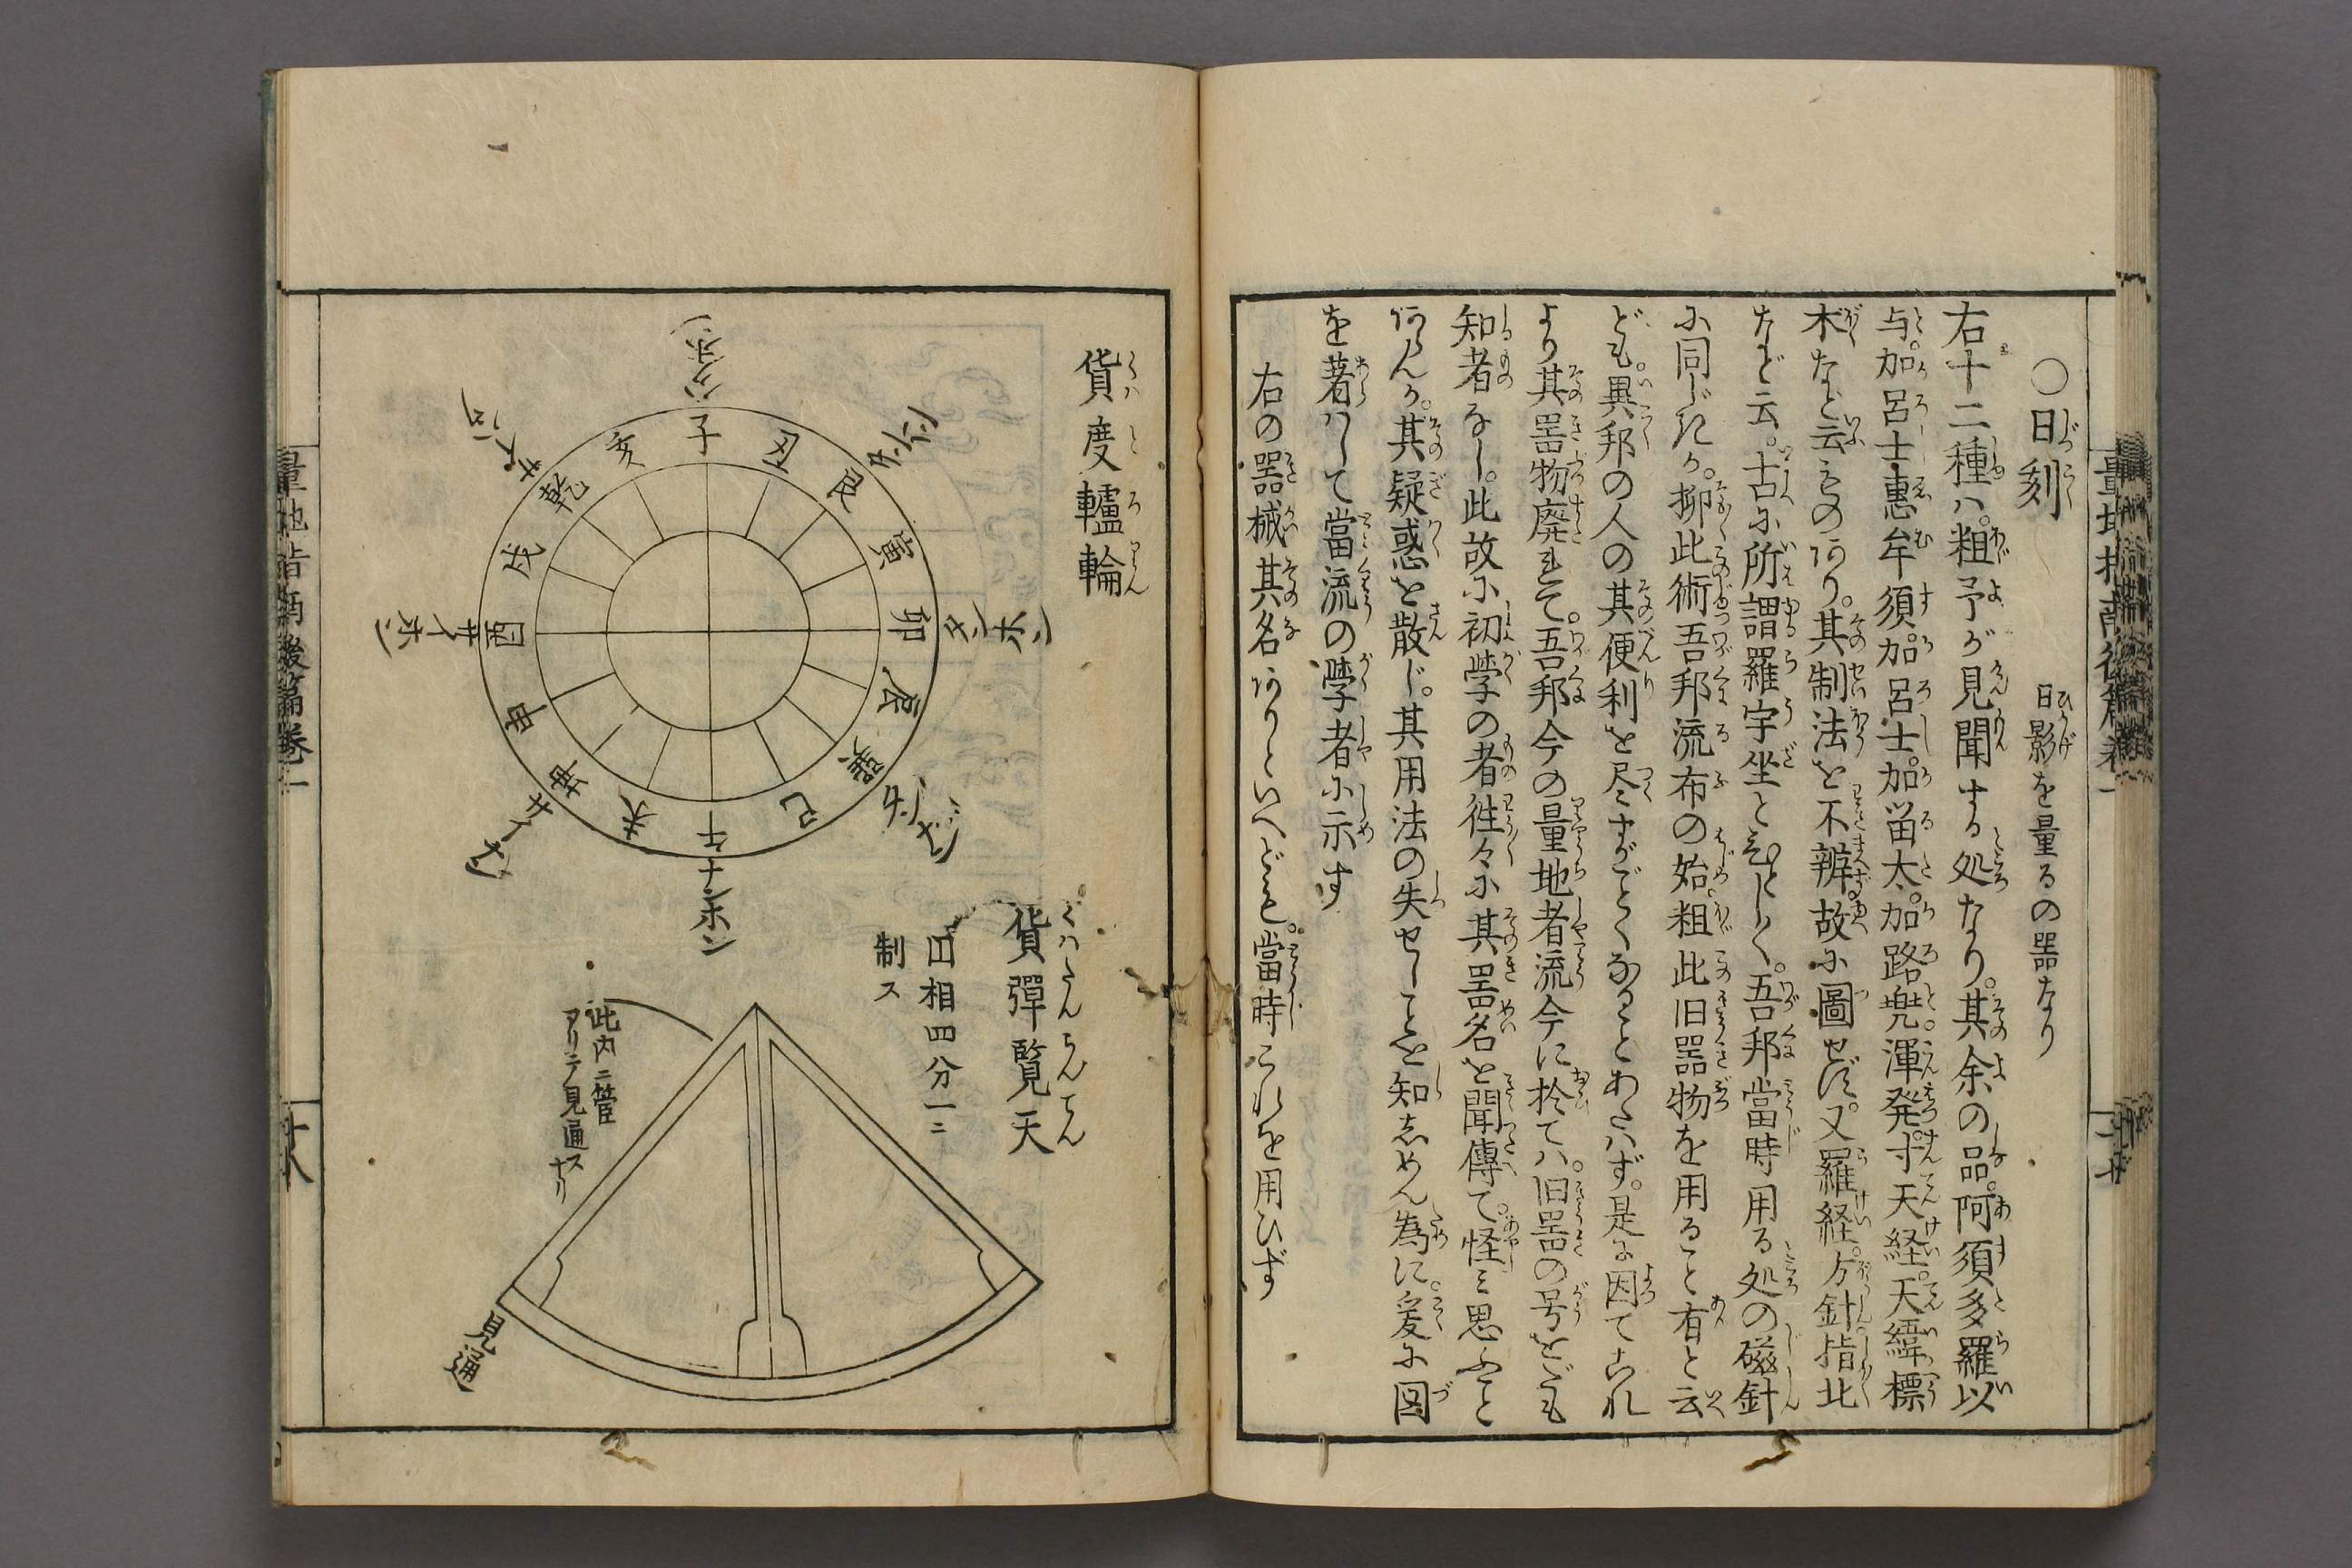 ○日刻 日影を量るの噐なり
右十二種ハ。粗予が見聞する処なり。其余の品。阿須多羅以
与。加呂士惠牟須。加呂士。加留太。加路兠。渾発。寸天経。天緯。標
木など云ものあり。其制法を不辨。故に圖せず。又羅経。方針。指北
など云。古に所謂羅宇坐とをなじく。吾邦當時用る処の磁針
に同じきか。抑此術吾邦流布の始。粗此旧噐物を用ること有と云
ども。異邦の人の其便利を尽すがごとくなることあたハず。是に因てこれ
より其噐物廃れて。吾邦今の量地者流今に於てハ。旧噐の号をだも
知者なし。此故に初學の者徃々に其噐名を聞傳て。怪ミ思ふこと
あらんか。其疑惑を散じ。其用法の失せしことを知しめん為に。爰に図
を著ハして當流の學者に示す
右の噐械其名ありといへども。當時これを用ひず
貨度轤輪
くハとろりん
子
丑
艮
寅
卯
辰
巽
巳
午
未
坤
申
酉
戌
乾
亥
ナンホン
サイホン
貨彈覧天
くハたんらんてん
田相四分一ニ
制ス
此内ニ管
アリテ見通ス
ナリ
見通
量地指南後篇卷一
十八